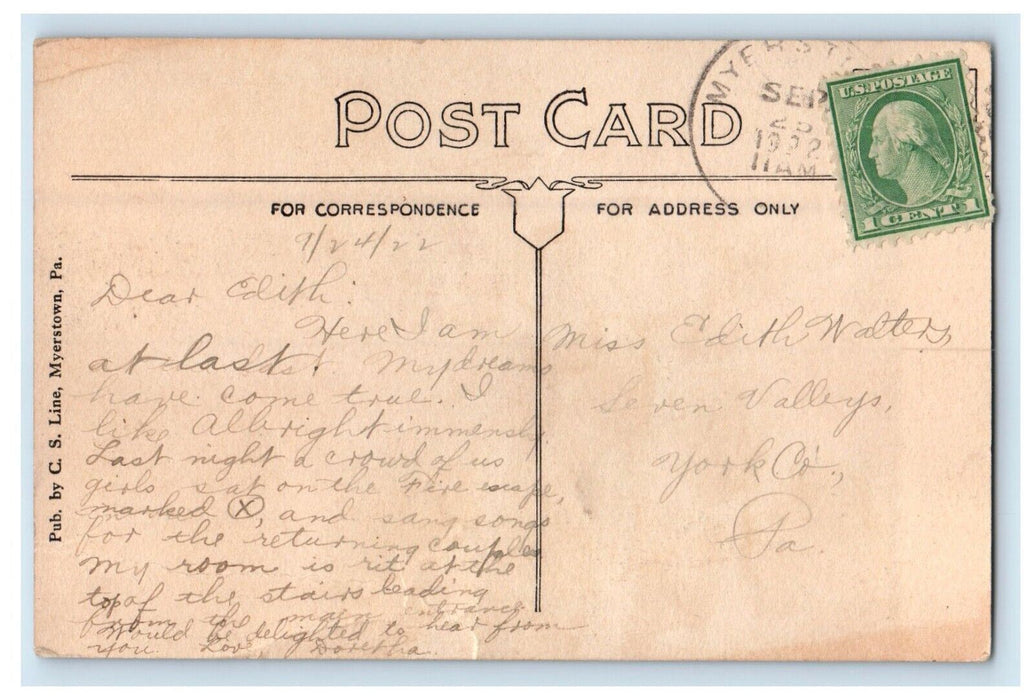 POST CARD
MYERST
SEP
25
1922
11 AM
U.S. POSTAGE
1 CENT 1
FOR CORRESPONDENCE
FOR ADDRESS ONLY
Pub. by C. S. Line, Myerstown, Pa.
9/24/22
Dear Edith:
Here I am
at last! My dreams
have come true. I
like Albright immensly.
Last night a crowd of us
girls sat on the Fire escape,
marked X, and sang songs
for the returning couples
My room is rit at the
top of the stairs leading
from the main entrance.
Would be delighted to hear from
you. Love, Doretha.
Miss Edith Walters,
Seven Valleys,
York Co.,
Pa.